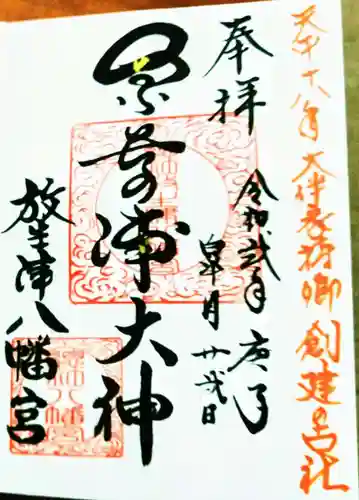 天平十八年大伴家持卿創建の古社
奉拝
令和弐年庚子
皐月廿弐日
奈呉浦大神
放生津八幡宮